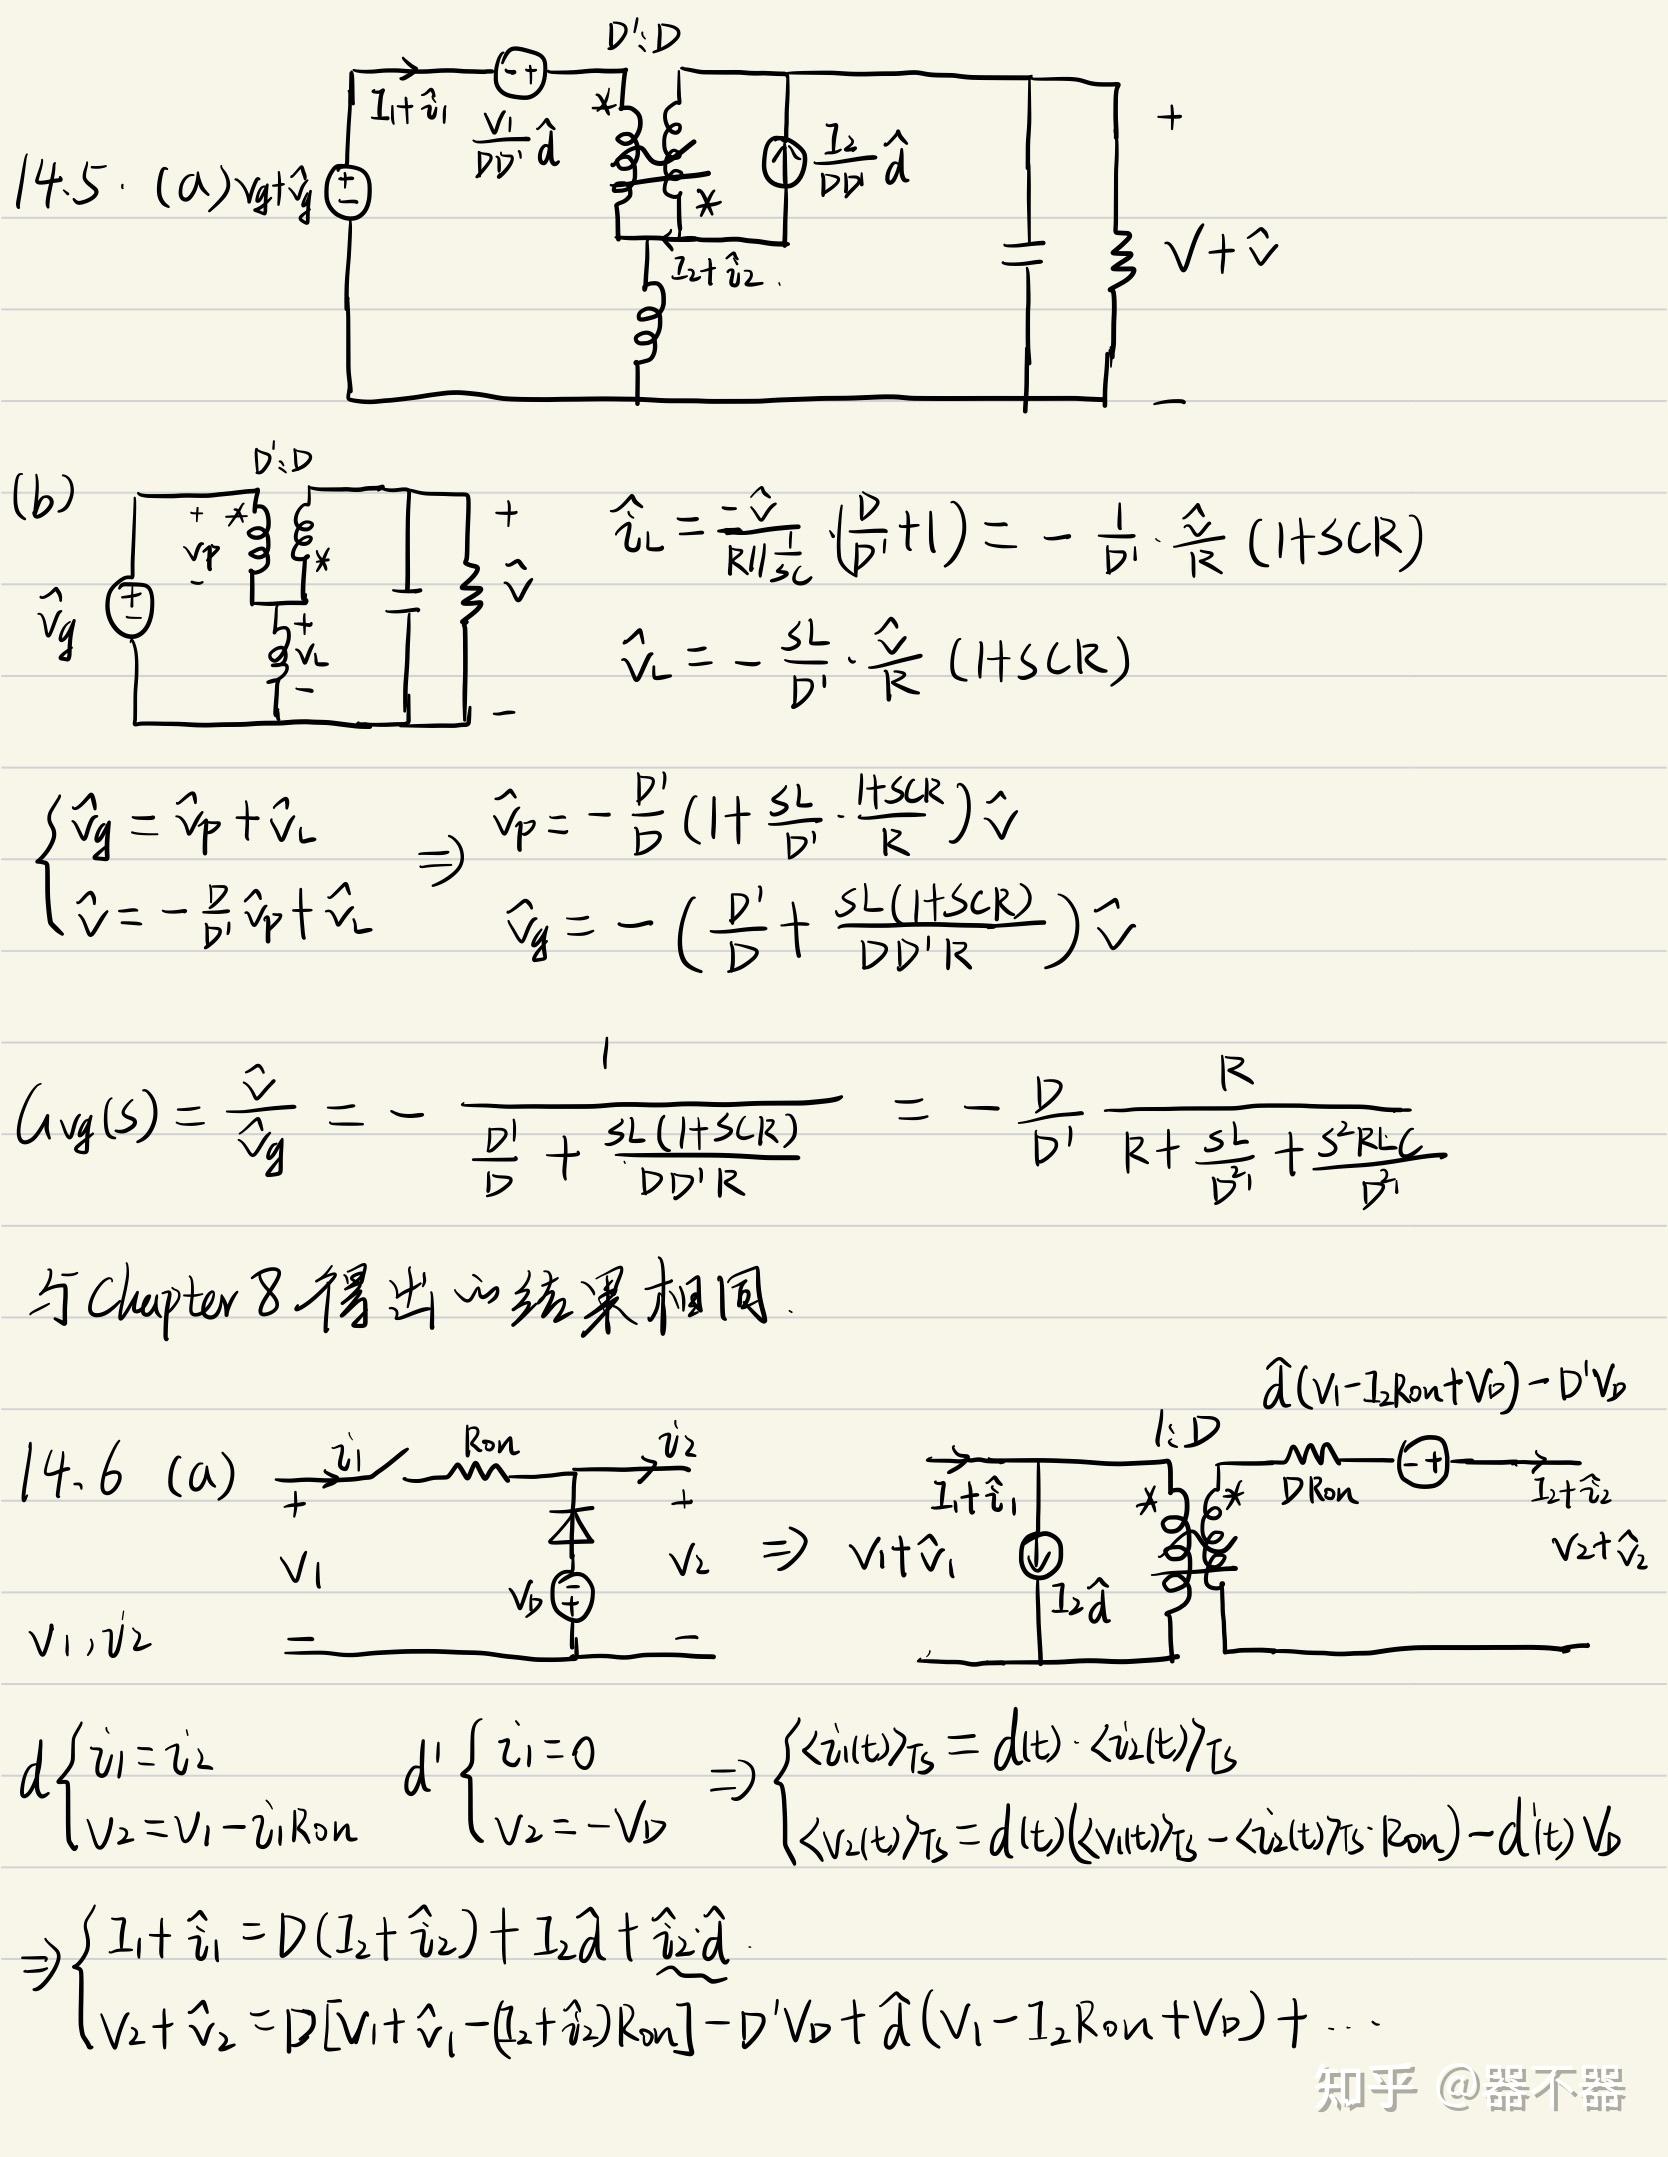 D':D
I₁+î₁
V₁/DD' d̂
I₂/DD' d̂
+
14.5. (a) Vg+v̂g
V+v̂
I₂+î₂.
−
(b)
D':D
+ vp −
+
v̂
−
v̂g
+ vL −
î_L = -v̂/(R∥1/sC) · (D/D'+1) = - 1/D' · v̂/R (1+SCR)
v̂_L = - SL/D' · v̂/R (1+SCR)
{ v̂g = v̂p + v̂_L
v̂ = - D/D' v̂p + v̂_L
⇒ v̂p = - D'/D (1 + SL/D' · (1+SCR)/R) v̂
v̂g = - (D'/D + SL(1+SCR)/DD'R) v̂
Gvg(s) = v̂/v̂g = - 1/(D'/D + SL(1+SCR)/DD'R) = - D/D' R/(R + SL/D'² + S²RLC/D'²)
与Chapter 8 得出的结果相同.
14.6 (a)
i₁
Ron
i₂
+
V₁
−
VD
+
V₂
−
⇒
V₁+v̂₁
I₁+î₁
I₂d̂
1:D
DRon
d̂(V₁-I₂Ron+VD)-D'VD
I₂+î₂
V₂+v̂₂
V₁, i₂
d { i₁=i₂
V₂=V₁-i₁Ron
d' { i₁=0
V₂=-VD
⇒ { <i₁(t)>Ts = d(t)·<i₂(t)>Ts
<V₂(t)>Ts = d(t)(<V₁(t)>Ts - <i₂(t)>Ts·Ron) - d'(t)VD
⇒ { I₁+î₁ = D(I₂+î₂) + I₂d̂ + î₂·d̂
V₂+v̂₂ = D[V₁+v̂₁-(I₂+î₂)Ron] - D'VD + d̂(V₁-I₂Ron+VD) + ...
知乎 @器不器